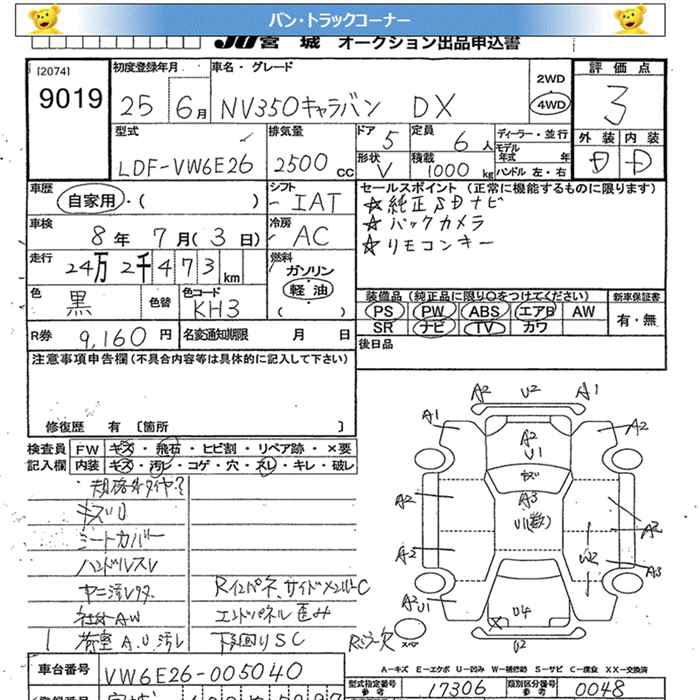 バン・トラックコーナー
JU宮城 オークション出品申込書
[2074]
9019
初度登録年月
25 6月
車名・グレード
NV350キャラバン DX
2WD
4WD
評価点
3
外装 内装
D D
型式
LDF-VW6E26
排気量
2500 CC
ドア 5
形状 V
定員 6 人
積載 1000 kg
ディーラー・並行
モデル年式 年
ハンドル 左・右
車歴 自家用・( )
シフト
IAT
車検 8年 7月(3日)
冷房
AC
走行 24万2千473km
燃料
ガソリン
軽・油
( )
色 黒 色替
色コード
KH3
R券 9,160円 名変通知期限 月 日
セールスポイント(正常に機能するものに限ります)
☆純正SDナビ
☆バックカメラ
☆リモコンキー
装備品(純正品に限り○をつけてください)
PS PW ABS エアB AW
SR ナビ TV カワ
新車保証書
有・無
後日品
注意事項申告欄(不具合内容等は具体的に記入して下さい)
修復歴 有 [箇所 ]
検査員記入欄
FW キズ・飛石・ヒビ割・リペア跡・×要
内装 キズ・汚レ・コゲ・穴・スレ・キレ・破レ
規格外タイヤ?
キズU
シートカバー
ハンドルスレ
ヤニ汚レタ
社外AW
荷室A.U.汚レ
Rインパネ、サイドメンバーC
エンドパネル歪み
下廻りSC
A2 U2 A1
A1 A2
A2 U1
キズ
A3
U1(数)
A2 A2
A2 W2 A3
A2U1
U4
U2
スペア
A-キズ E-エクボ U-凹み W-補修跡 S-サビ C-腐食 X-要交換 XX-交換済
車台番号 VW6E26-005040
型式指定番号
参考
17306
類別区分番号
参考
0048